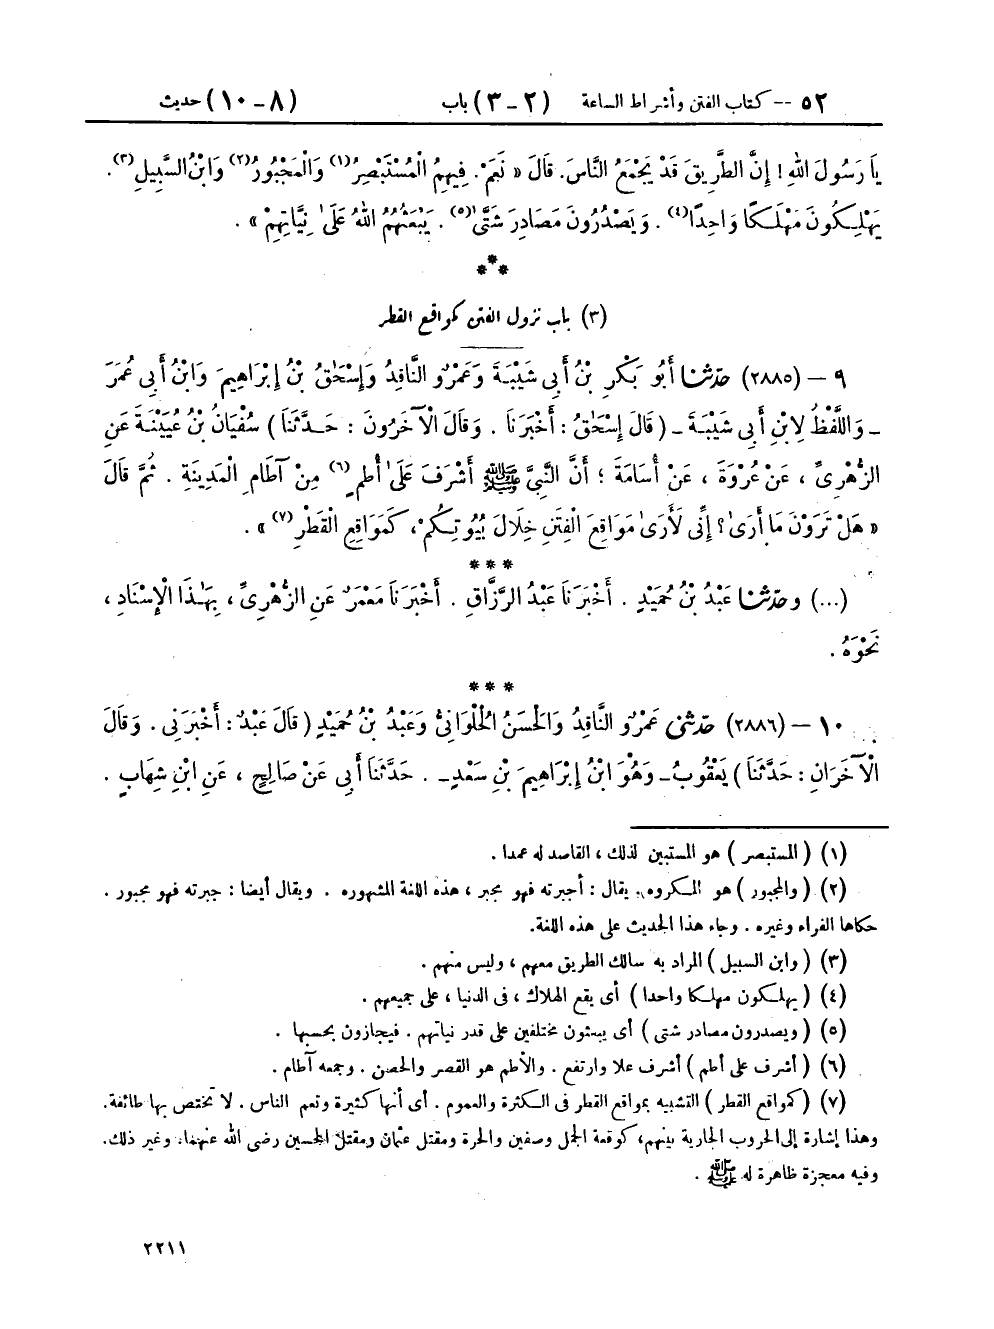 ٥٢ -- كتاب الفتن وأشراط الساعة (٢-٣) باب (٨-١٠) حديث
يَا رَسُولَ اللهِ! إِنَّ الطَّرِيقَ قَدْ يَجْمَعُ النَّاسَ. قَالَ « نَعَمْ. فِيهِمُ الْمُسْتَبْصِرُ(١) وَالْمَجْبُورُ(٢) وَابْنُ السَّبِيلِ(٣).
يَهْلِكُونَ مَهْلَكًا وَاحِدًا(٤). وَيَصْدُرُونَ مَصَادِرَ شَتَّىٰ(٥). يَبْعَثُهُمُ اللهُ عَلَىٰ نِيَّاتِهِمْ ».
***
(٣) باب نزول الفتن كمواقع القطر
٩ – (٢٨٨٥) حدّثنا أَبُو بَكْرِ بْنُ أَبِي شَيْبَةَ وَعَمْرٌو النَّاقِدُ وَإِسْحَاقُ بْنُ إِبْرَاهِيمَ وَابْنُ أَبِي عُمَرَ
_ وَاللَّفْظُ لِابْنِ أَبِي شَيْبَةَ _ (قَالَ إِسْحَاقُ: أَخْبَرَنَا. وَقَالَ الْآخَرُونَ: حَدَّثَنَا) سُفْيَانُ بْنُ عُيَيْنَةَ عَنِ
الزُّهْرِيِّ، عَنْ عُرْوَةَ، عَنْ أُسَامَةَ؛ أَنَّ النَّبِيَّ ﷺ أَشْرَفَ عَلَىٰ أُطُمٍ(٦) مِنْ آطَامِ الْمَدِينَةِ. ثُمَّ قَالَ
« هَلْ تَرَوْنَ مَا أَرَىٰ؟ إِنِّي لَأَرَىٰ مَوَاقِعَ الْفِتَنِ خِلَالَ بُيُوتِكُمْ، كَمَوَاقِعِ الْقَطْرِ(٧) ».
***
(...) وحدّثنا عَبْدُ بْنُ حُمَيْدٍ. أَخْبَرَنَا عَبْدُ الرَّزَّاقِ. أَخْبَرَنَا مَعْمَرٌ عَنِ الزُّهْرِيِّ، بِهَـٰذَا الْإِسْنَادِ،
نَحْوَهُ.
***
١٠ – (٢٨٨٦) حدّثني عَمْرٌو النَّاقِدُ وَالْحَسَنُ الْحُلْوَانِيُّ وَعَبْدُ بْنُ حُمَيْدٍ (قَالَ عَبْدٌ: أَخْبَرَنِي. وَقَالَ
الْآخَرَانِ: حَدَّثَنَا) يَعْقُوبُ _ وَهُوَ ابْنُ إِبْرَاهِيمَ بْنِ سَعْدٍ _. حَدَّثَنَا أَبِي عَنْ صَالِحٍ، عَنِ ابْنِ شِهَابٍ.
(١) (المستبصر) هو المستبين لذلك، القاصد له عمدا.
(٢) (والمجبور) هو المكروه. يقال: أجبرته فهو مجبر، هذه اللغة المشهوره. ويقال أيضا: جبرته فهو مجبور.
حكاها الفراء وغيره. وجاء هذا الحديث على هذه اللغة.
(٣) (وابن السبيل) المراد به سالك الطريق معهم، وليس منهم.
(٤) (يهلكون مهلكا واحدا) أى يقع الهلاك، فى الدنيا، على جميعهم.
(٥) (ويصدرون مصادر شتى) أى يبعثون مختلفين على قدر نياتهم. فيجازون بحسبها.
(٦) (أشرف على أطم) أشرف علا وارتفع. والأطم هو القصر والحصن. وجمعه آطام.
(٧) (كمواقع القطر) التشبيه بمواقع القطر فى الكثرة والعموم. أى أنها كثيرة وتعم الناس. لا تختص بها طائفة.
وهذا إشارة إلى الحروب الجارية بينهم، كوقعة الجمل وصفين والحرة ومقتل عثمان ومقتل الحسين رضى الله عنهما، وغير ذلك.
وفيه معجزة ظاهرة له ﷺ.
٢٢١١